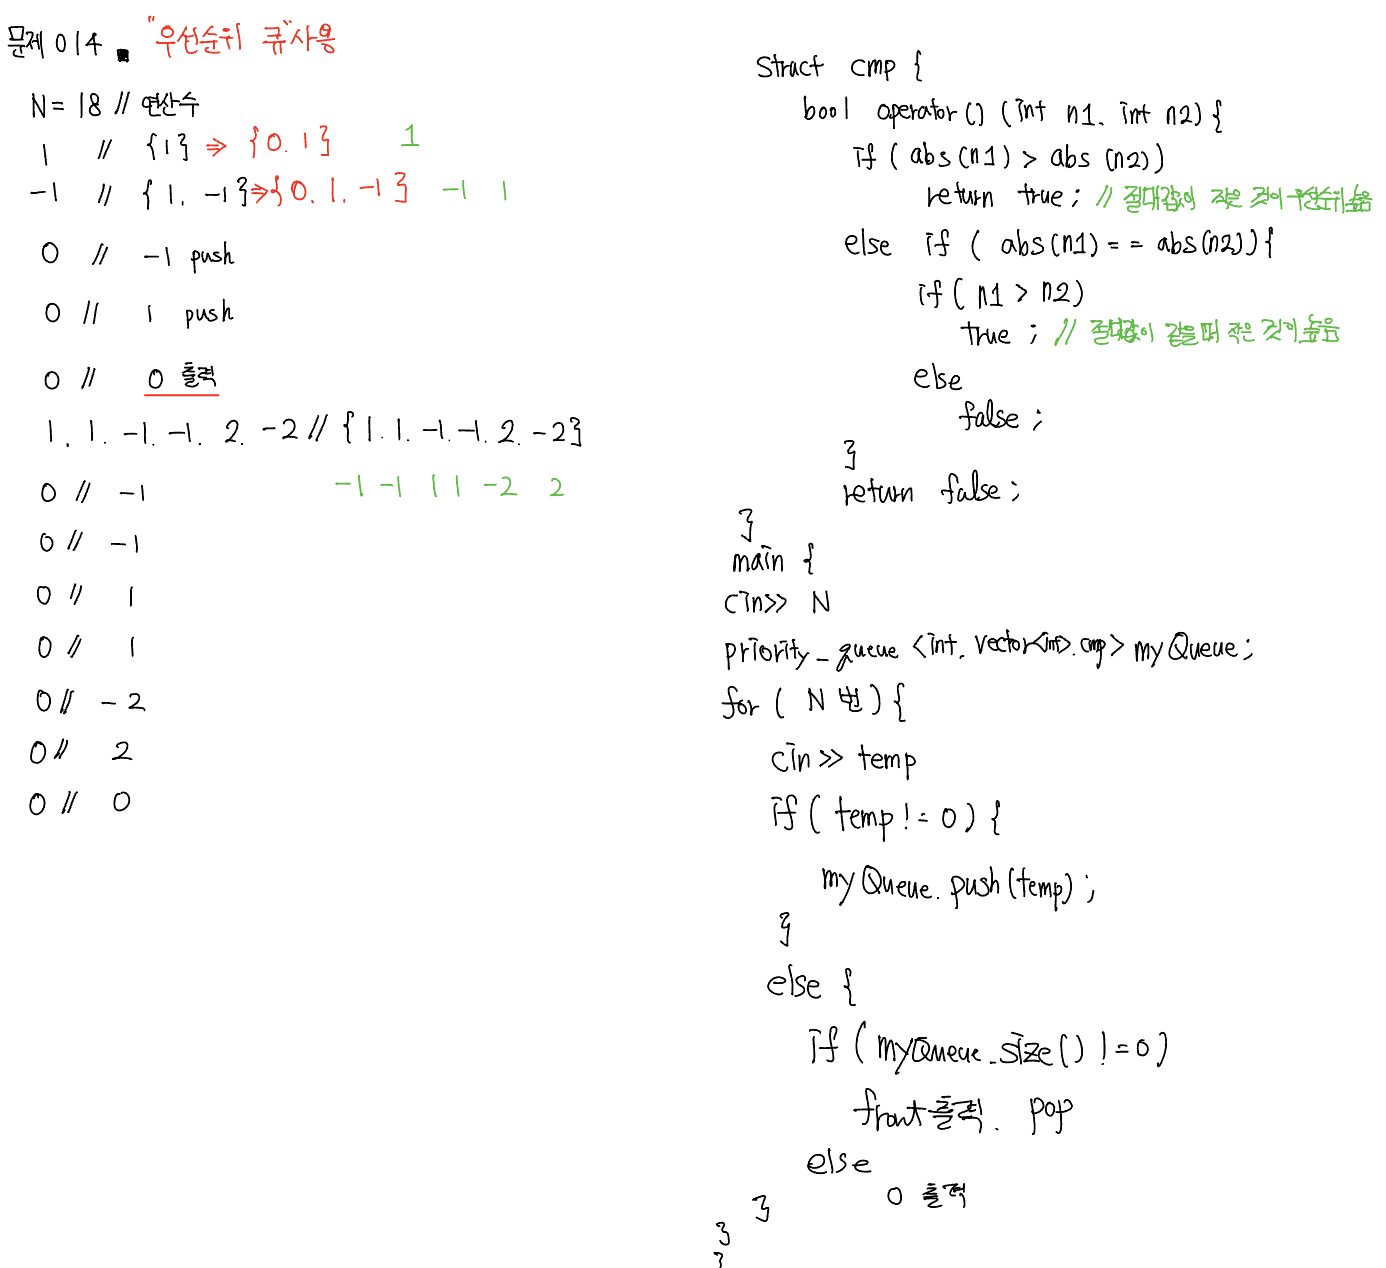 문제 014. "우선순위 큐" 사용
N = 18 // 연산수
1 // {1} ⇒ {0. 1} 1
-1 // {1. -1} ⇒ {0. 1. -1} -1 1
0 // -1 push
0 // 1 push
0 // 0 출력
1. 1. -1. -1. 2. -2 // {1. 1. -1. -1. 2. -2}
0 // -1 -1 -1 1 1 -2 2
0 // -1
0 // 1
0 // 1
0 // -2
0 // 2
0 // 0
struct cmp {
bool operator() (int n1. int n2) {
if ( abs(n1) > abs (n2))
return true ; // 절대값이 작은 것이 우선순위 높음
else if ( abs(n1) == abs(n2)) {
if ( n1 > n2)
true ; // 절대값이 같을 때 작은 것이 높음
else
false ;
}
return false ;
}
main {
cin>> N
priority_queue <int. vector<int>. cmp> myQueue ;
for ( N 번 ) {
cin >> temp
if ( temp != 0 ) {
myQueue. push (temp) ;
}
else {
if ( myQueue.size() != 0 )
front 출력. pop
else
0 출력
}
}
}